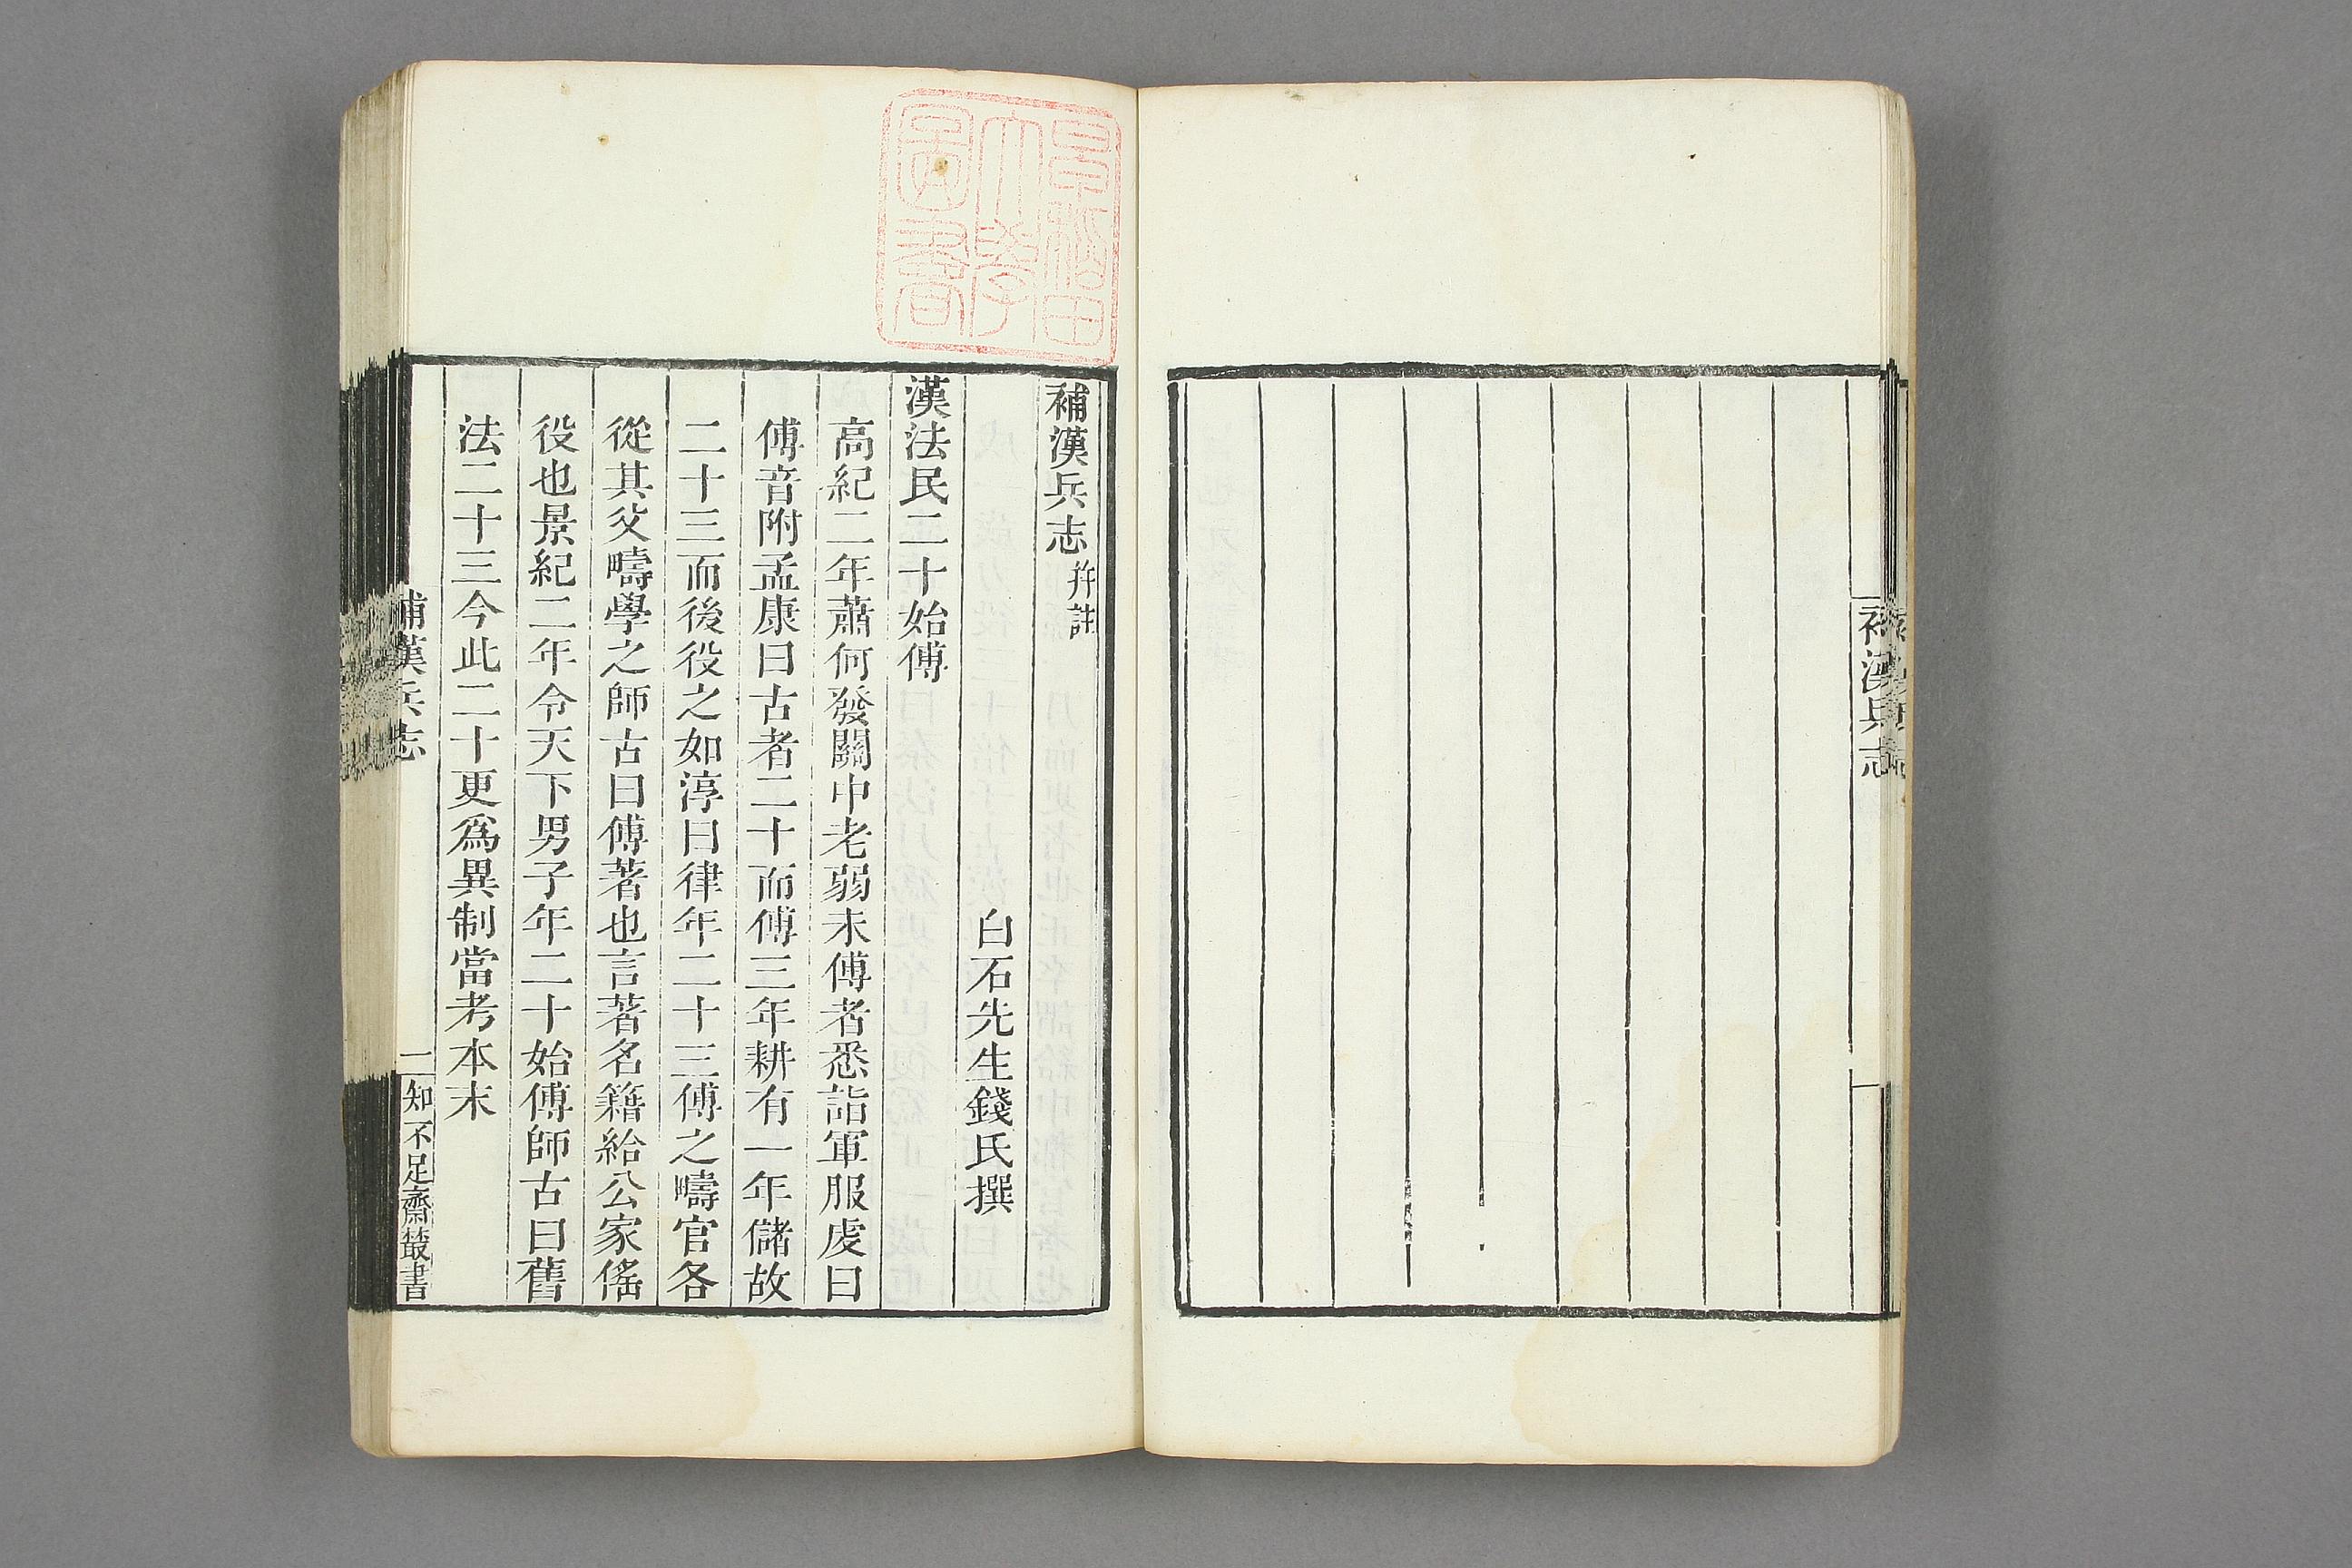 補漢兵志
早稲田
大學
圖書
補漢兵志 幷註
白石先生錢氏撰
漢法民二十始傅
高紀二年蕭何發關中老弱未傅者悉詣軍服虔曰
傅音附孟康曰古者二十而傅三年耕有一年儲故
二十三而後役之如淳曰律年二十三傅之疇官各
從其父疇學之師古曰傅著也言著名籍給公家徭
役也景紀二年令天下男子年二十始傅師古曰舊
法二十三今此二十更爲異制當考本末
補漢兵志
二
知不足齋叢書